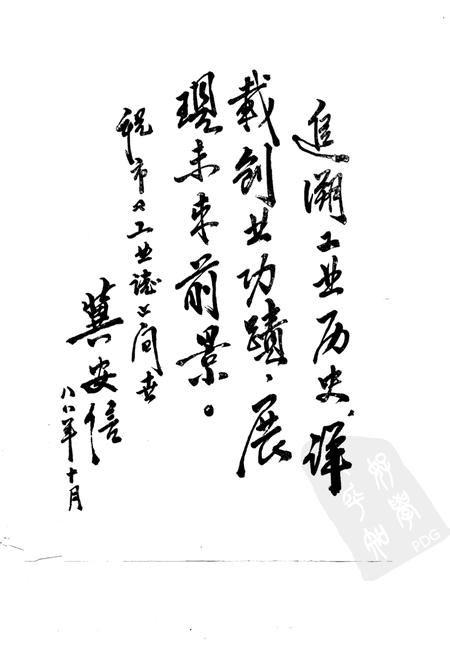 追溯工业历史、详
载创业功蹟、展
现未来前景。
祝市工业誌问世
冀安信
八八年十月
PDG